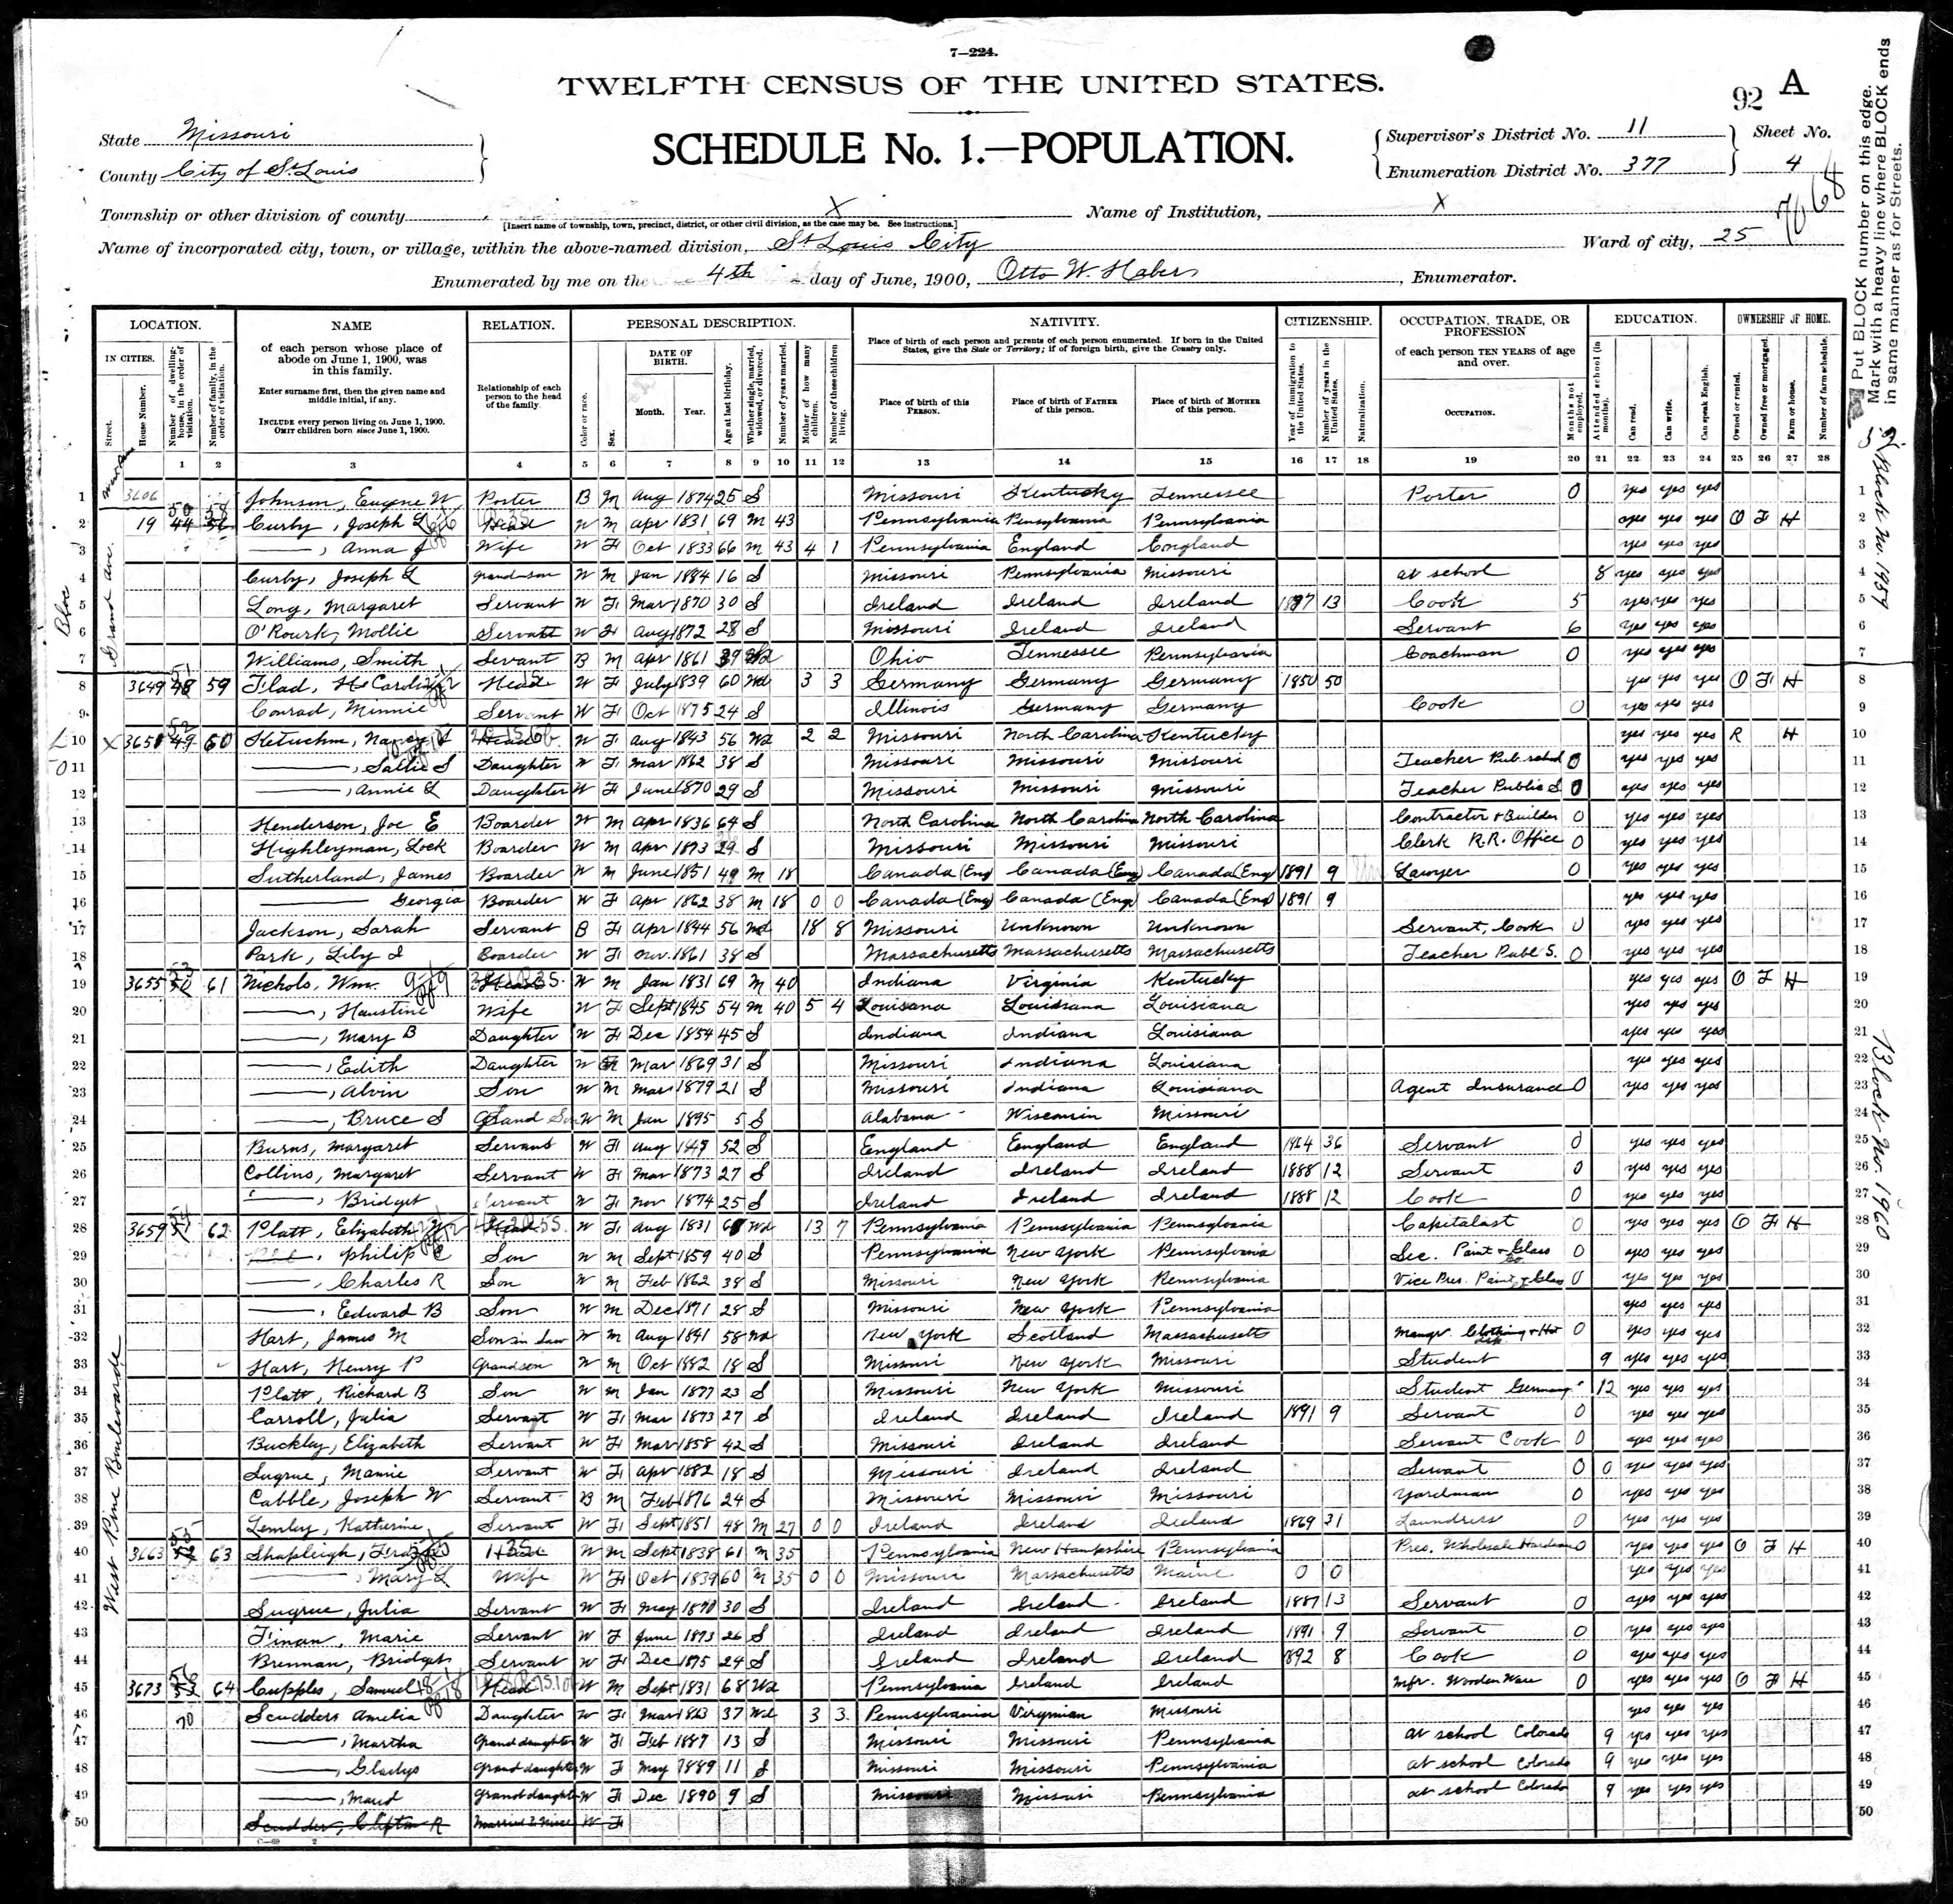 7—224.
TWELFTH CENSUS OF THE UNITED STATES.
92 A
State Missouri
County City of St. Louis
SCHEDULE No. 1.—POPULATION.
Supervisor's District No. 11
Enumeration District No. 377
Sheet No.
4
Township or other division of county X
[Insert name of township, town, precinct, district, or other civil division, as the case may be. See instructions.]
Name of Institution, X
Name of incorporated city, town, or village, within the above-named division, St Louis City
Ward of city, 25
7668
Enumerated by me on the 4th day of June, 1900, Otto W. Haber, Enumerator.
Put BLOCK number on this edge.
Mark with a heavy line where BLOCK ends
in same manner as for Streets.
LOCATION. NAME RELATION. PERSONAL DESCRIPTION. NATIVITY. CITIZENSHIP. OCCUPATION, TRADE, OR PROFESSION EDUCATION. OWNERSHIP OF HOME.
IN CITIES.
Street.
House Number.
Number of dwelling-house, in the order of visitation.
Number of family, in the order of visitation.
of each person whose place of abode on June 1, 1900, was in this family.
Enter surname first, then the given name and middle initial, if any.
INCLUDE every person living on June 1, 1900.
OMIT children born since June 1, 1900.
Relationship of each person to the head of the family.
Color or race.
Sex.
DATE OF BIRTH.
Month. Year.
Age at last birthday.
Whether single, married, widowed, or divorced.
Number of years married.
Mother of how many children.
Number of these children living.
Place of birth of each person and parents of each person enumerated. If born in the United States, give the State or Territory; if of foreign birth, give the Country only.
Place of birth of this PERSON.
Place of birth of FATHER of this person.
Place of birth of MOTHER of this person.
Year of immigration to the United States.
Number of years in the United States.
Naturalization.
of each person TEN YEARS of age and over.
OCCUPATION.
Months not employed.
Attended school (in months).
Can read.
Can write.
Can speak English.
Owned or rented.
Owned free or mortgaged.
Farm or house.
Number of farm schedule.
1 2 3 4 5 6 7 8 9 10 11 12 13 14 15 16 17 18 19 20 21 22 23 24 25 26 27 28
1 3606 Johnson, Eugene W Porter B M Aug 1874 25 S Missouri Kentucky Tennessee Porter 0 yes yes yes 1
2 19 44 Curby, Joseph L Head W M Apr 1831 69 M 43 Pennsylvania Pensylvania Pennsylvania yes yes yes O F H 2
3 ——, Anna J Wife W F Oct 1833 66 M 43 4 1 Pennsylvania England England yes yes yes 3
4 Curby, Joseph L Grand-son W M Jan 1884 16 S Missouri Pennsylvania Missouri at school 8 yes yes yes 4
5 Long, Margaret Servant W F Mar 1870 30 S Ireland Ireland Ireland 1887 13 Cook 5 yes yes yes 5
6 O'Rourk, Mollie Servant W F Aug 1872 28 S Missouri Ireland Ireland Servant 6 yes yes yes 6
7 Williams, Smith Servant B M Apr 1861 39 Wd Ohio Tennessee Pennsylvania Coachman 0 yes yes yes 7
8 3649 48 59 Flad, Caroline Head W F July 1839 60 Wd 3 3 Germany Germany Germany 1850 50 yes yes yes O F H 8
9 Conrad, Minnie Servant W F Oct 1875 24 S Illinois Germany Germany Cook 0 yes yes yes 9
10 X 3651 49 60 Head W F Aug 1843 56 Wd 2 2 Missouri North Carolina Kentucky yes yes yes R H 10
11 ——, Sallie S Daughter W F Mar 1862 38 S Missouri Missouri Missouri Teacher Pub. school 0 yes yes yes 11
12 ——, Annie L Daughter W F June 1870 29 S Missouri Missouri Missouri Teacher Public S 0 yes yes yes 12
13 Henderson, Joe E Boarder W M Apr 1836 64 S North Carolina North Carolina North Carolina Contractor & Builder 0 yes yes yes 13
14 Highleyman, Lock Boarder W M Apr 1873 29 S Missouri Missouri Missouri Clerk R.R. Office 0 yes yes yes 14
15 Sutherland, James Boarder W M June 1851 49 M 18 Canada (Eng) Canada (Eng) Canada (Eng) 1891 9 Lawyer 0 yes yes yes 15
16 —— Georgia Boarder W F Apr 1862 38 M 18 0 0 Canada (Eng) Canada (Eng) Canada (Eng) 1891 9 yes yes yes 16
17 Jackson, Sarah Servant B F Apr 1844 56 Wd 18 8 Missouri Unknown Unknown Servant, Cook 0 yes yes yes 17
18 Park, Lily I Boarder W F Nov. 1861 38 S Massachusetts Massachusetts Massachusetts Teacher Publ S. 0 yes yes yes 18
19 3655 50 61 Nichols, Wm. Head W M Jan 1831 69 M 40 Indiana Virginia Kentucky yes yes yes O F H 19
20 ——, Haustine Wife W F Sept 1845 54 M 40 5 4 Louisana Louidsana Louisiana yes yes yes 20
21 ——, Mary B Daughter W F Dec 1854 45 S Indiana Indiana Louisiana yes yes yes 21
22 ——, Edith Daughter W F Mar 1869 31 S Missouri Indiana Louisiana yes yes yes 22
23 ——, Alvin Son W M Mar 1879 21 S Missouri Indiana Louisiana Agent Insurance 0 yes yes yes 23
24 ——, Bruce S Grand Son W M Jan 1895 5 S Alabama Wisconsin Missouri 24
25 Burns, Margaret Servant W F Aug 1847 52 S England England England 1864 36 Servant 0 yes yes yes 25
26 Collins, Margaret Servant W F Mar 1873 27 S Ireland Ireland Ireland 1888 12 Servant 0 yes yes yes 26
27 ——, Bridget Servant W F Nov 1874 25 S Ireland Ireland Ireland 1888 12 Cook 0 yes yes yes 27
28 3659 51 62 Platt, Elizabeth Head W F Aug 1831 Wd 13 7 Pennsylvania Pennsylvania Pennsylvania Capitalast 0 yes yes yes O F H 28
29 ——, Philip C Son W M Sept 1859 40 S Pennsylvania New York Pennsylvania Sec. Paint & Glass Co 0 yes yes yes 29
30 ——, Charles R Son W M Feb 1862 38 S Missouri New York Pennsylvania Vice Pres. Paint & Glass 0 yes yes yes 30
31 ——, Edward B Son W M Dec 1871 28 S Missouri New York Pennsylvania yes yes yes 31
32 Hart, James M Son in Law W M Aug 1841 58 Wd New York Scotland Massachusetts Mangr. Clothing & Hat 0 yes yes yes 32
33 Hart, Henry P Grandson W M Oct 1882 18 S Missouri New York Missouri Student 9 yes yes yes 33
34 Platt, Richard B Son W M Jan 1877 23 S Missouri New York Missouri Student Germany 12 yes yes yes 34
35 Carroll, Julia Servant W F Mar 1873 27 S Ireland Ireland Ireland 1891 9 Servant 0 yes yes yes 35
36 Buckley, Elizabeth Servant W F Mar 1858 42 S Missouri Ireland Ireland Servant Cook 0 yes yes yes 36
37 Sugrue, Mamie Servant W F Apr 1882 18 S Missouri Ireland Ireland Servant 0 0 yes yes yes 37
38 Cabble, Joseph W Servant B M Feb 1876 24 S Missouri Missouri Missouri Yardman 0 yes yes yes 38
39 Lemley, Katherine Servant W F Sept 1851 48 M 27 0 0 Ireland Ireland Ireland 1869 31 Laundress 0 yes yes yes 39
40 3663 52 63 Shapleigh, Head W M Sept 1838 61 M 35 Pennsylvania New Hampshire Pennsylvania Pres. Wholesale Hardware 0 yes yes yes O F H 40
41 ——, Mary L Wife W F Oct 1839 60 M 35 0 0 Missouri Massachusetts Maine 0 0 yes yes yes 41
42 Sugrue, Julia Servant W F May 1870 30 S Ireland Ireland Ireland 1887 13 Servant 0 yes yes yes 42
43 Finan, Marie Servant W F June 1873 26 S Ireland Ireland Ireland 1891 9 Servant 0 yes yes yes 43
44 Brennan, Bridget Servant W F Dec 1875 24 S Ireland Ireland Ireland 1892 8 Cook 0 yes yes yes 44
45 3673 53 64 Cupples, Samuel Head W M Sept 1831 68 Wd Pennsylvania Ireland Ireland Mfr. Wooden Ware 0 yes yes yes O F H 45
46 70 Scudders Amelia Daughter W F Mar 1863 37 Wd 3 3 Pennsylvania Virginian Missouri yes yes yes 46
47 ——, Martha Grand daughter W F Feb 1887 13 S Missouri Missouri Pennsylvania at school Colorado 9 yes yes yes 47
48 ——, Gladys Grand daughter W F May 1889 11 S Missouri Missouri Pennsylvania at school Colorado 9 yes yes yes 48
49 ——, Maud Grand daughter W F Dec 1890 9 S Missouri Missouri Pennsylvania at school Colorado 9 yes yes yes 49
50 Scudder, Clifton R W F 50
C—69 2
Grand Ave.
West Pine Boulevarde
Block No. 1954
Block No. 1960